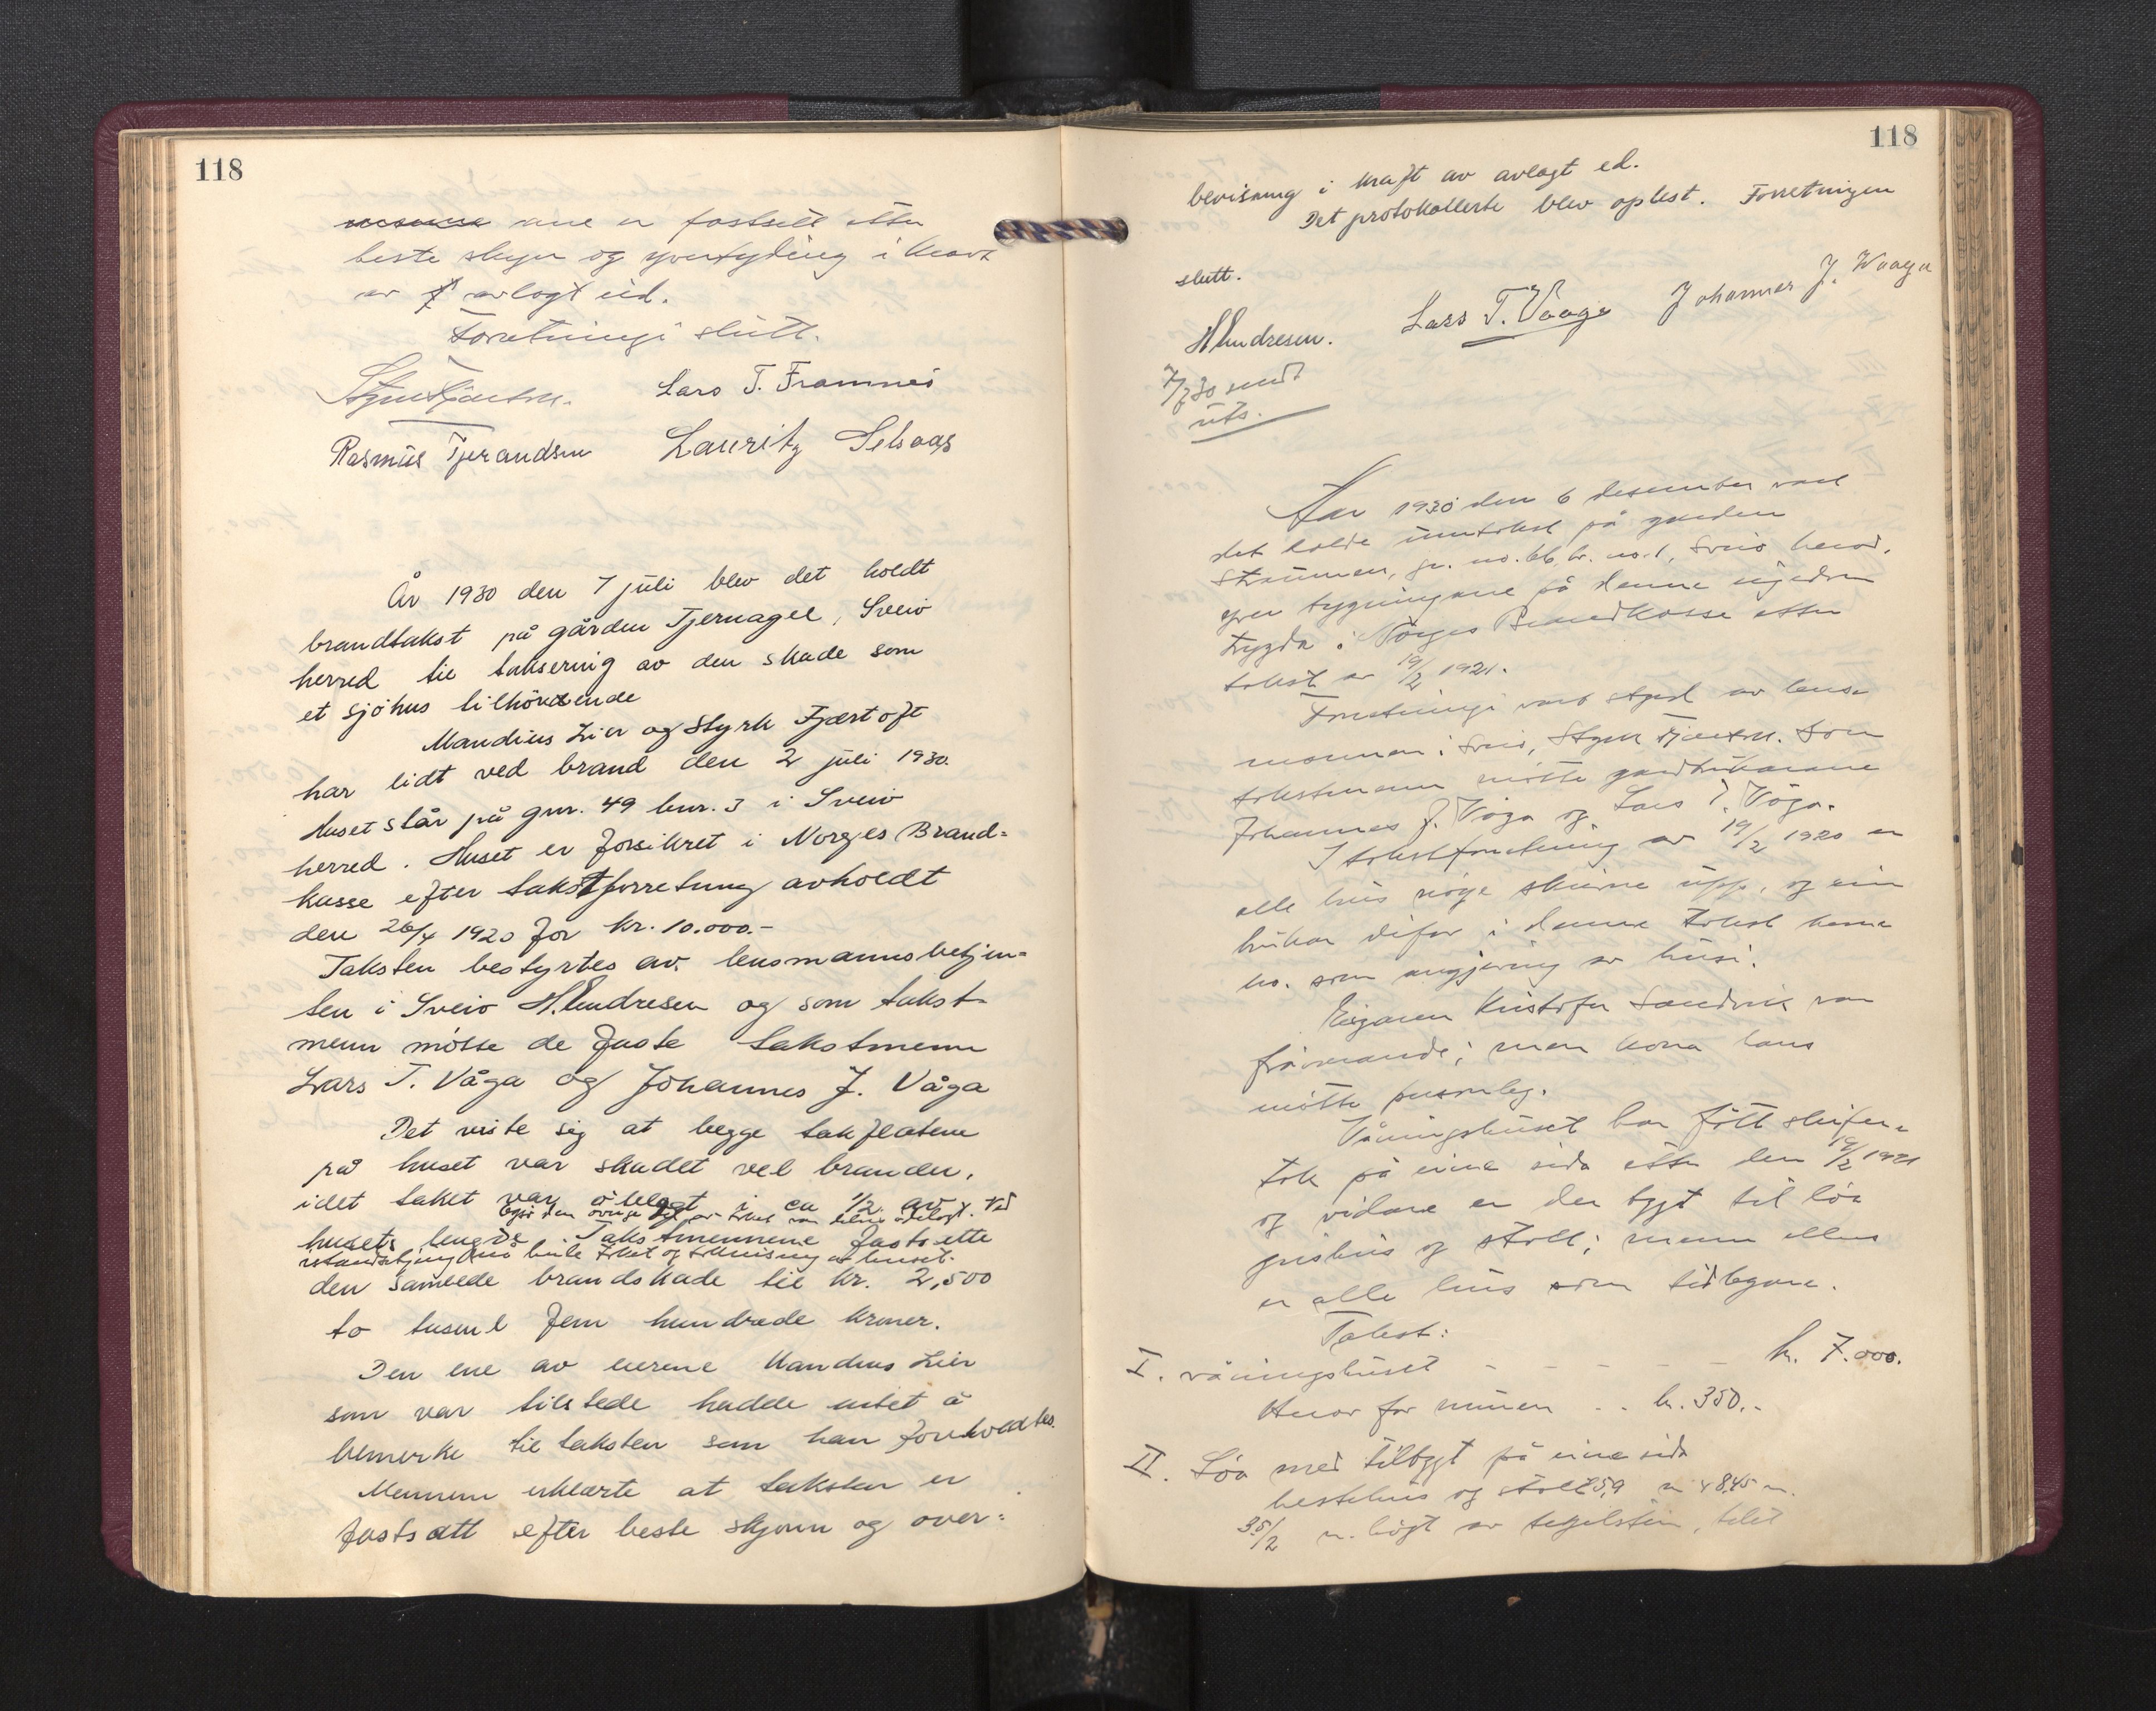 118
ane er fastsett etter
beste skyn og yvertyding i kraft
av avlagt eid.
Forretningi slutt.
Lars T. Framnes
Rasmus Tjerandsen Lauritz Selsaas
År 1930 den 7 juli blev det holdt
brandtakst på gården Tjernagel, Sveio
herred til taksering av den skade som
et sjöhus tilhörende
Mandius Lier og Styrk Fjærtoft
har lidt ved brand den 2 juli 1930.
Huset står på gnr. 49 bnr. 3 i Sveio
herred. Huset er forsikret i Norges Brand-
kasse efter takstforretning avholdt
den 26/4 1920 for kr. 10.000.-
Taksten bestyrtes av lensmannsbetjen-
ten i Sveio H. Endresen og som takst-
menn mötte de faste takstmenn
Lars T. Våga og Johannes J. Våga
Det viste sig at begge takflatene
på huset var skadet ved branden,
idet taket var ödelagt i ca 1/2 av
Også den övrige del av taket var delvis ödelagt. Ved
husets lengde. Takstmennene fastsette
istandsetjing må hele taket og
den samlede brandskade til kr. 2,500
to tusend fem hundrede kroner.
Den ene av eierne Mandius Lier
som var tilstede hadde intet å
bemerke til taksten som han foreholdtes.
Mennene erklærte at taksten er
fastsatt efter beste skjönn og over-
118
bevisning i kraft av avlagt ed.
Det protokollerte blev oplest. Forretningen
slutt.
H Endresen. Lars T. Vaage Johannes J. Waage
7/7 30 sendt
uts.
Aar 1930 den 6 desember vart
det halde umtakst på garden
Straumen, gr. no. 66, br. no. 1, Sveio herad,
yver bygningane på denne eigedom
trygda i Norges Brandkasse etter
takst av 19/2 1921.
Forretningi vart styrd av lens-
mannen i Sveio, Styrk Fjærtoft. Som
takstmenn mötte gardbrukarane
Johannes J. Våga og Lars T. Våga.
I takstforretning av 19/2 1920 er
alle hus nöye skrivne upp, og ein
brukar difor i denne takst same
no. som umgjering av husi.
Eigaren Kristofer Sandvik var
fråverande; men kona hans
mötte personleg.
Våningshuset har fått skifer-
tak på eine sida etter den 19/2 1921
og vidare er der bygt til löa
grishus og stall; menn ellers
er alle hus som tidlegare.
Takst:
I. våningshuset - - - - - kr. 7.000.
Herav for muren .. kr. 350.-
II. Löa med tilbygt på eine sida
hestehus og stall 25,9 m x 8,45 m.
3.5/2 m. högt av tegelstein, telet